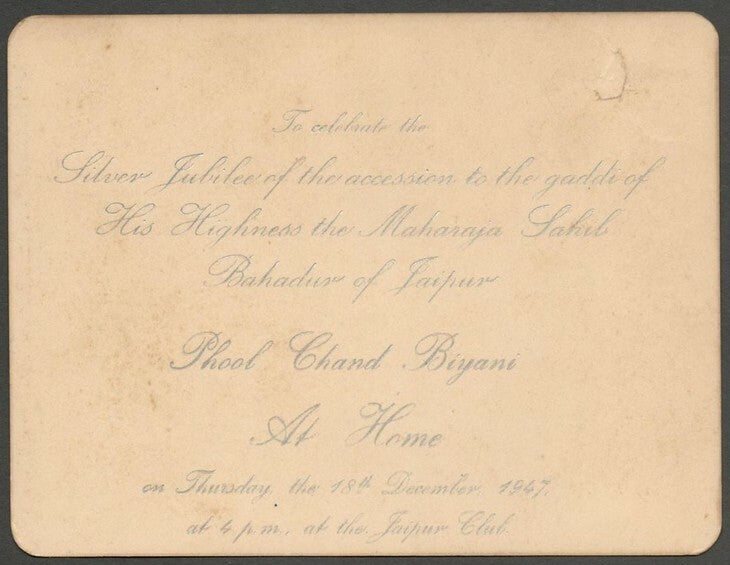 To celebrate the
Silver Jubilee of the accession to the gaddi of
His Highness the Maharaja Sahib
Bahadur of Jaipur
Phool Chand Biyani
At Home
on Thursday, the 18th December, 1947,
at 4 p.m. at the Jaipur Club.